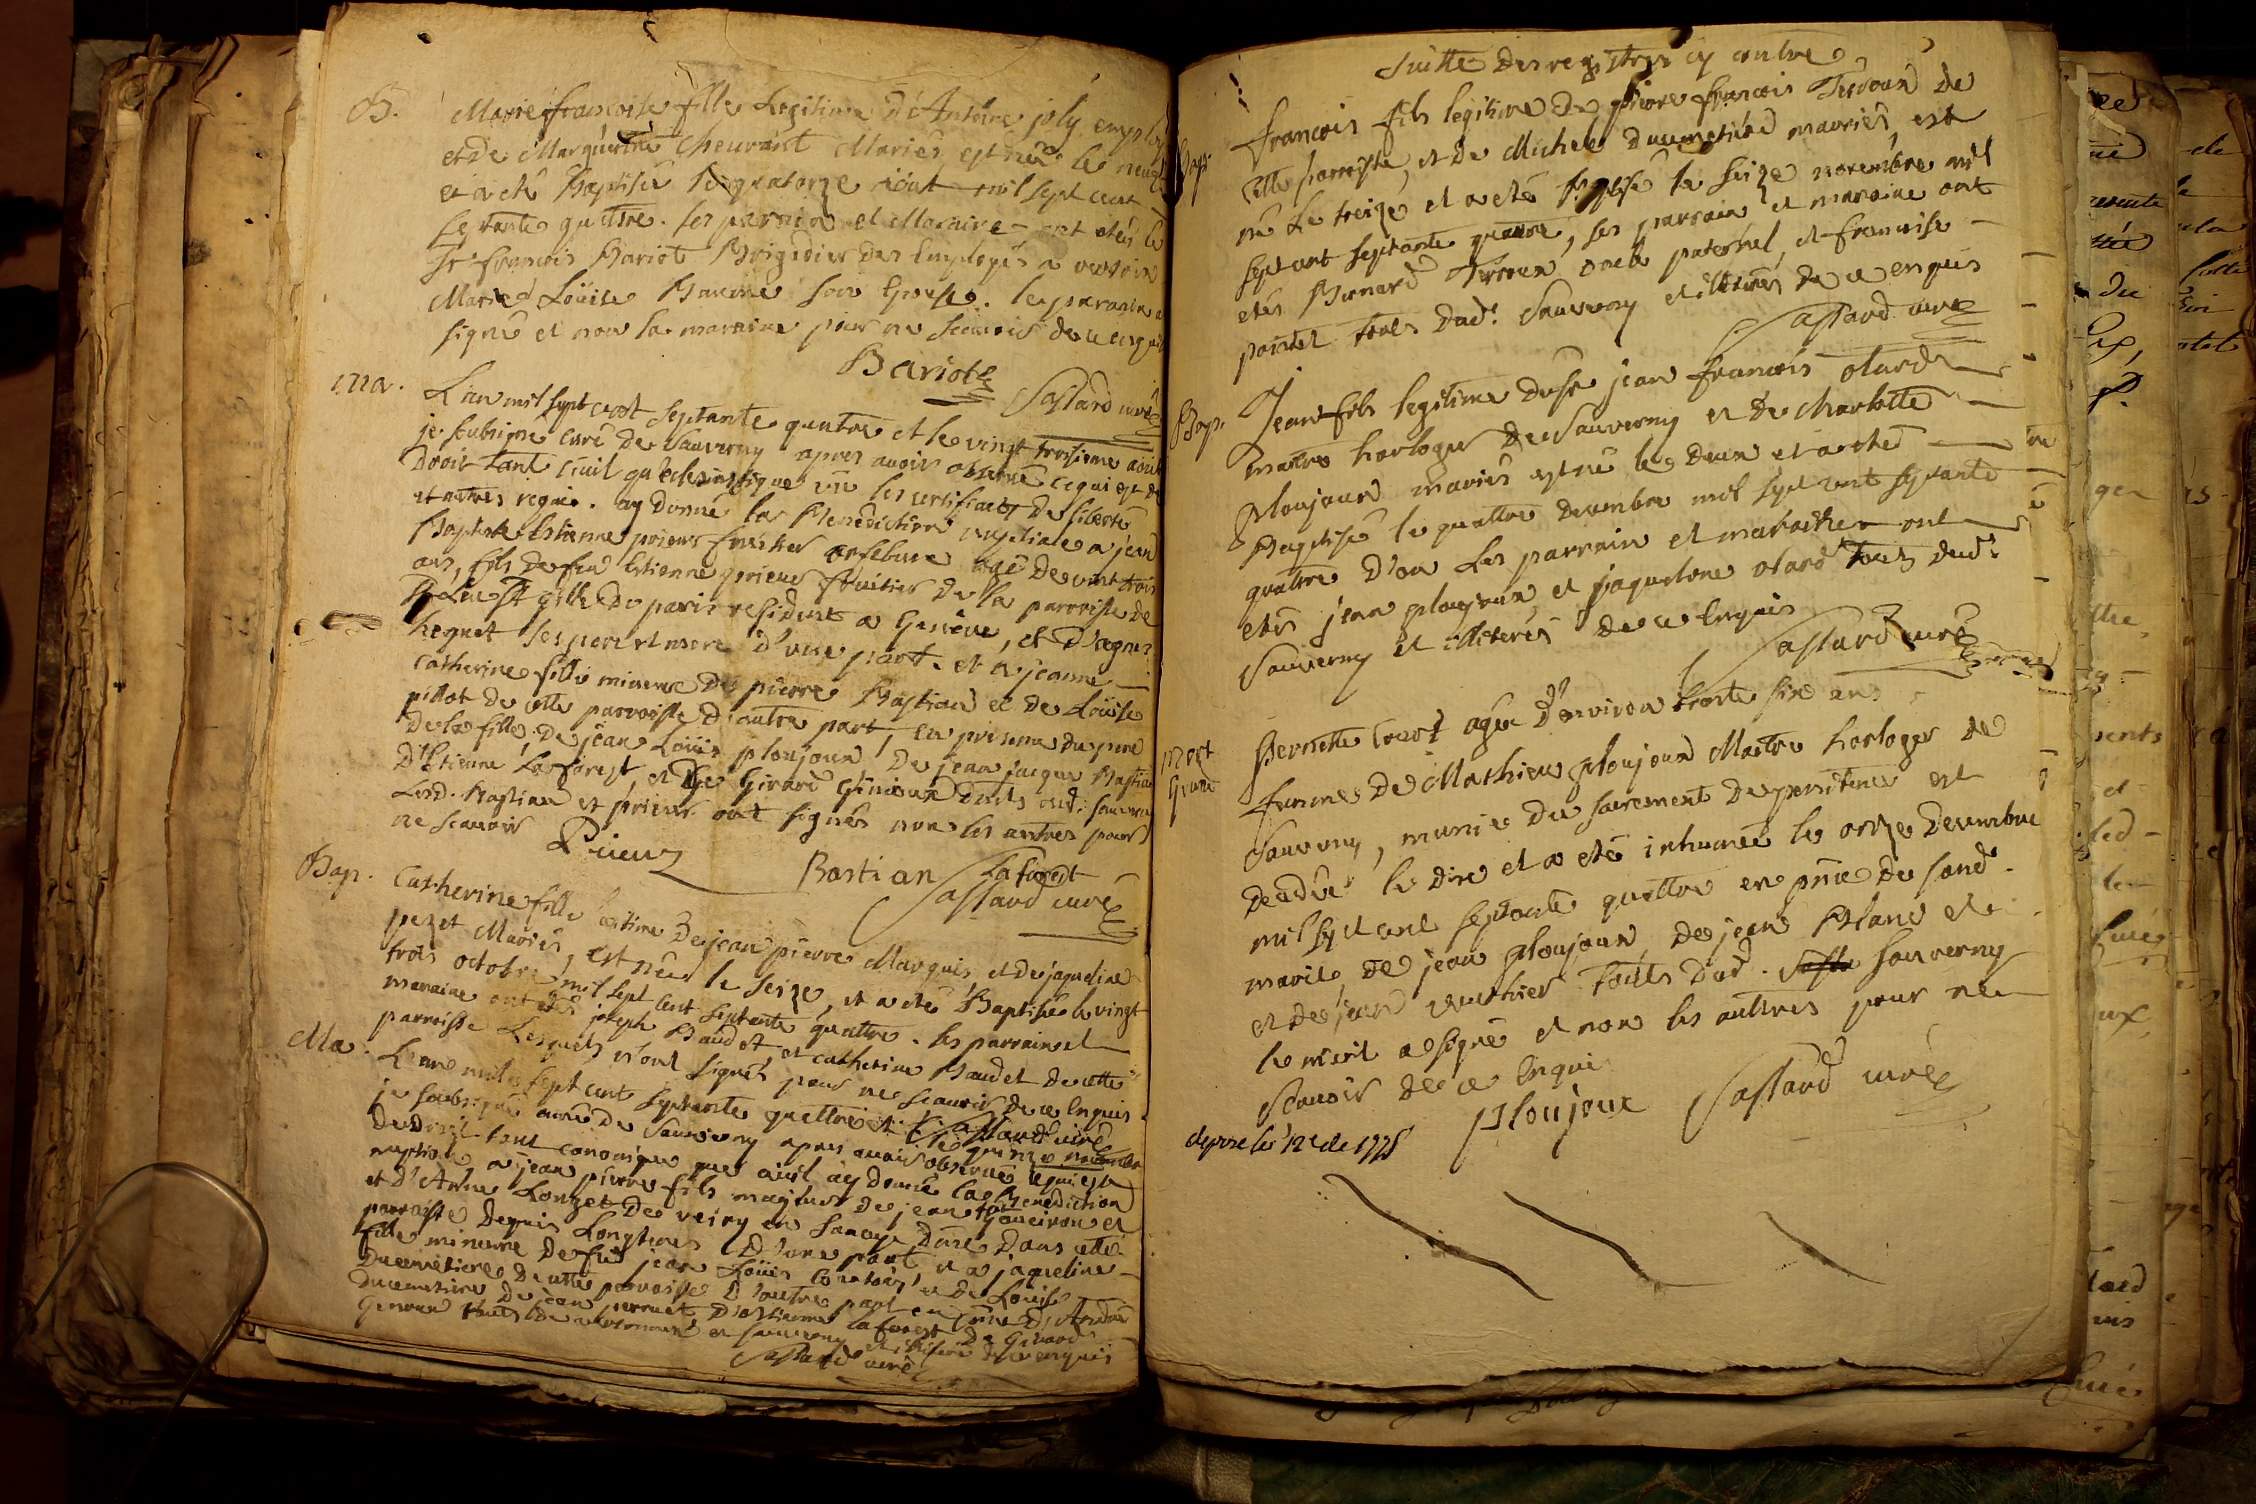 B. Marie françoise fille Legitime D'Antoine joly employ
et de Margueritte Cheuvant Mariés est née le neuf
et a eté Baptisée le quatorze aout mil sept cent
septante quattre. ses parrain et Maraine ont etés le
Sr françois Bariot Brigadier des Employés a versoix
Marie Loüise son Epouse. le parrain a
signé et non la maraine pour ne sçavoir de ce enquis
Bariot
Sassard curé
ma. L'an mil sept cent septante quattre et le vingt troisieme aout
je soubsigné curé de Sauverny apres avoir observé ce qui est de
Droit tant civil qu'eclesiastique vu les certificats De liberté
et autres requis. ay Donné la Benediction nuptiale a jean
Baptiste Estienne prieur fruitier orfebvre agé De vint trois
ans, fils de feu Estienne prieur fruitier De la parroisse de
St Gille De paris resident a Genéve, et D'agnes
hequet ses pere et mere D'une part. et a jeanne
Catherine fille mineure De pierre Bastian et De Loüise
pillot de cette parroisse D'autre part, en presence du pere
De la fille. De jean Loüis ploujoux De jean jacque Bastian
D'Etienne Laforest, et De Girard Ginioux touts dud. sauverny
Lesd. Bastian et prieur ont signés non les autres pour
ne scavoir
Prieur Bastian Laforest
Sassard curé
Bap. Catherine fille legitime De jean pierre Marquis, et de jaqueline
pezet Mariés, est née le seize, et a eté Baptisée le vingt
trois octobre mil sept cent septante quattre. les parrain et
maraine ont etés joseph Baudet, et catherine Baudet de cette
parroisse Lesquels n'ont signés pour ne scavoir de ce Enquis.
Sassard curé
Ma. L'an mil sept cent septante quattre et le quinze novembre
je soubsigné curé De Sauverny apres avoir observé ce qui est
de droit tant canonique que civil ay donné la Benediction
nuptiale a jean pierre fils majeur de jean
et D'Anne Lonzet De veiry en Savoye Dans cette
parroisse Depuis Longtems D'une part et a jaqueline
fille mineure De feu jean Loüis et de Loüise
Ducemetiere De cette parroisse D'autre part en D'André
Ducemetiere De jean perruet D'estienne Laforest De Girard
Genoux touts De et sauverny et illiteré de ce enquis
Sassard curé
Suitte Des registres cy contre
Bap. francois fils legitime De pierre francois Terroux De
cette parroisse, et de Michele Ducemetiere mariés, est
né Le treize et a eté Baptisé le seize novembre mil
sept cent septante quattre, ses parrain et maraine ont
etés Bernard Terroux oncle paternel, et francoise
pointet touts Dud. Sauverny et illiterés de ce enquis
Sassard curé
Bap. Jean fils legitime du Sr jean francois olard
maitre horloger De Sauverny et De charlotte
ploujoux mariés est né le Deux et a eté
Baptisé le quattre Decembre mil sept cent septante
quattre D'ou Les parrain et maraine ont
etés jean ploujoux, et jaqueline olard touts dud.
Sauverny et illiterés De ce Enquis
Sassard curé
mort Pernette agée D'environ trente six ans
femme De Mathieu ploujoux Maitre horloger de
Sauverny, munie Du sacrement De penitence est
Decedée le dix et a eté inhumée le onze Decembre
mil sept cent septante quattre en pnce De sond.
marit, De jean ploujoux, De jean et
et De jean touts Dud. Sauverny
le marit a signé et non les auttres pour ne
Scavoir De ce Enqui
Ploujoux Sassard curé
deposé le 12e de 1775